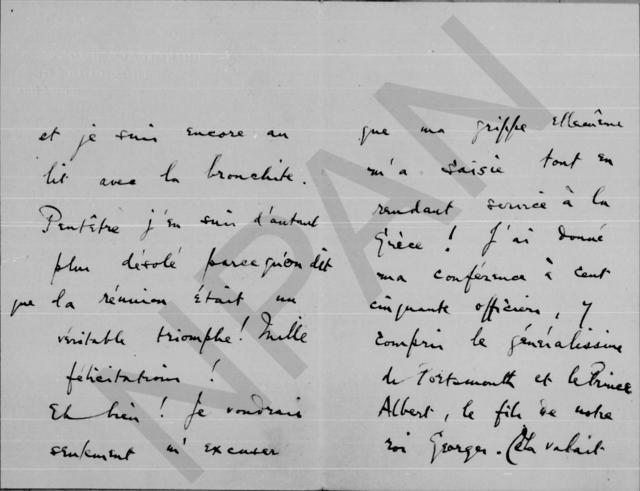 et je suis encore au
lit avec la bronchite.
Peutêtre j'en suis d'autant
plus désolé parcequ'on dit
que la réunion était un
véritable triomphe! Mille
félicitations!
Eh bien! Je voudrais
seulement m'excuser
que ma grippe ellemême
m'a saisie tout en
rendant service à la
Grèce! J'ai donné
ma conférence à cent
cinquante officiers, y
compris le généralissime
de Portsmouth et le Prince
Albert, le fils de notre
roi Georges. (Ça valait
NPAN